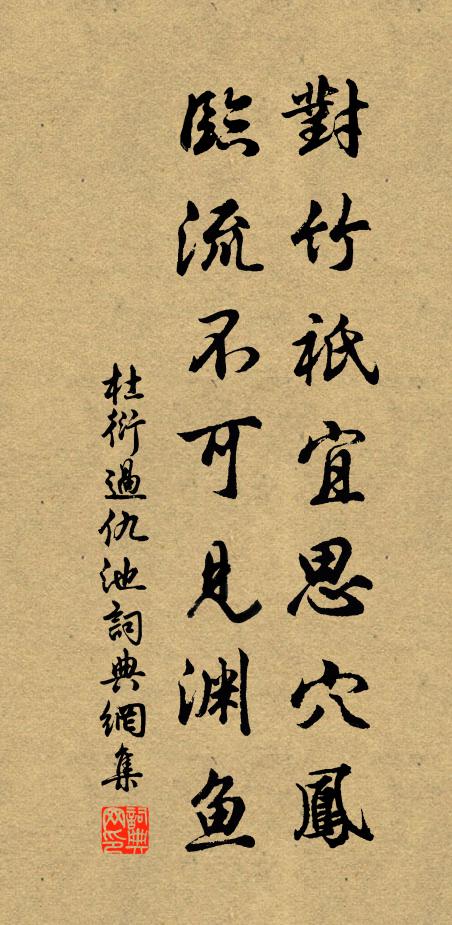 對竹祇宜思穴鳳
臨流不可見淵魚
杜衍過仇池詞典網集
詞典网印